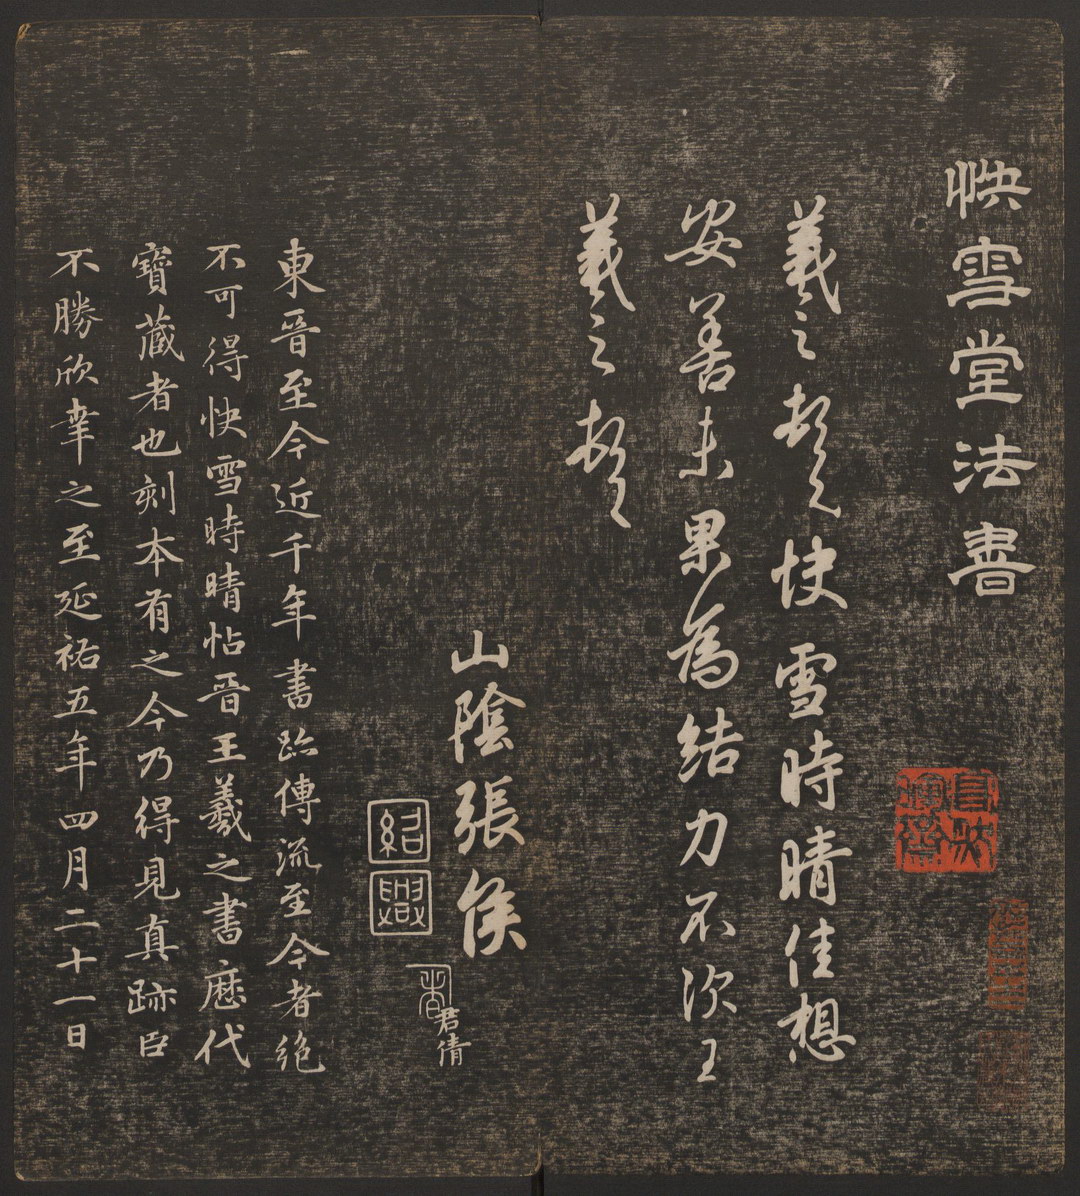 快雪堂法書
羲之頓首快雪時晴佳想
安善未果為結力不次王
羲之頓首
山陰張侯
君倩
紹興
東晉至今近千年書跡傳流至今者絶
不可得快雪時晴帖晉王羲之書歷代
寶藏者也刻本有之今乃得見真跡臣
不勝欣幸之至延祐五年四月二十一日